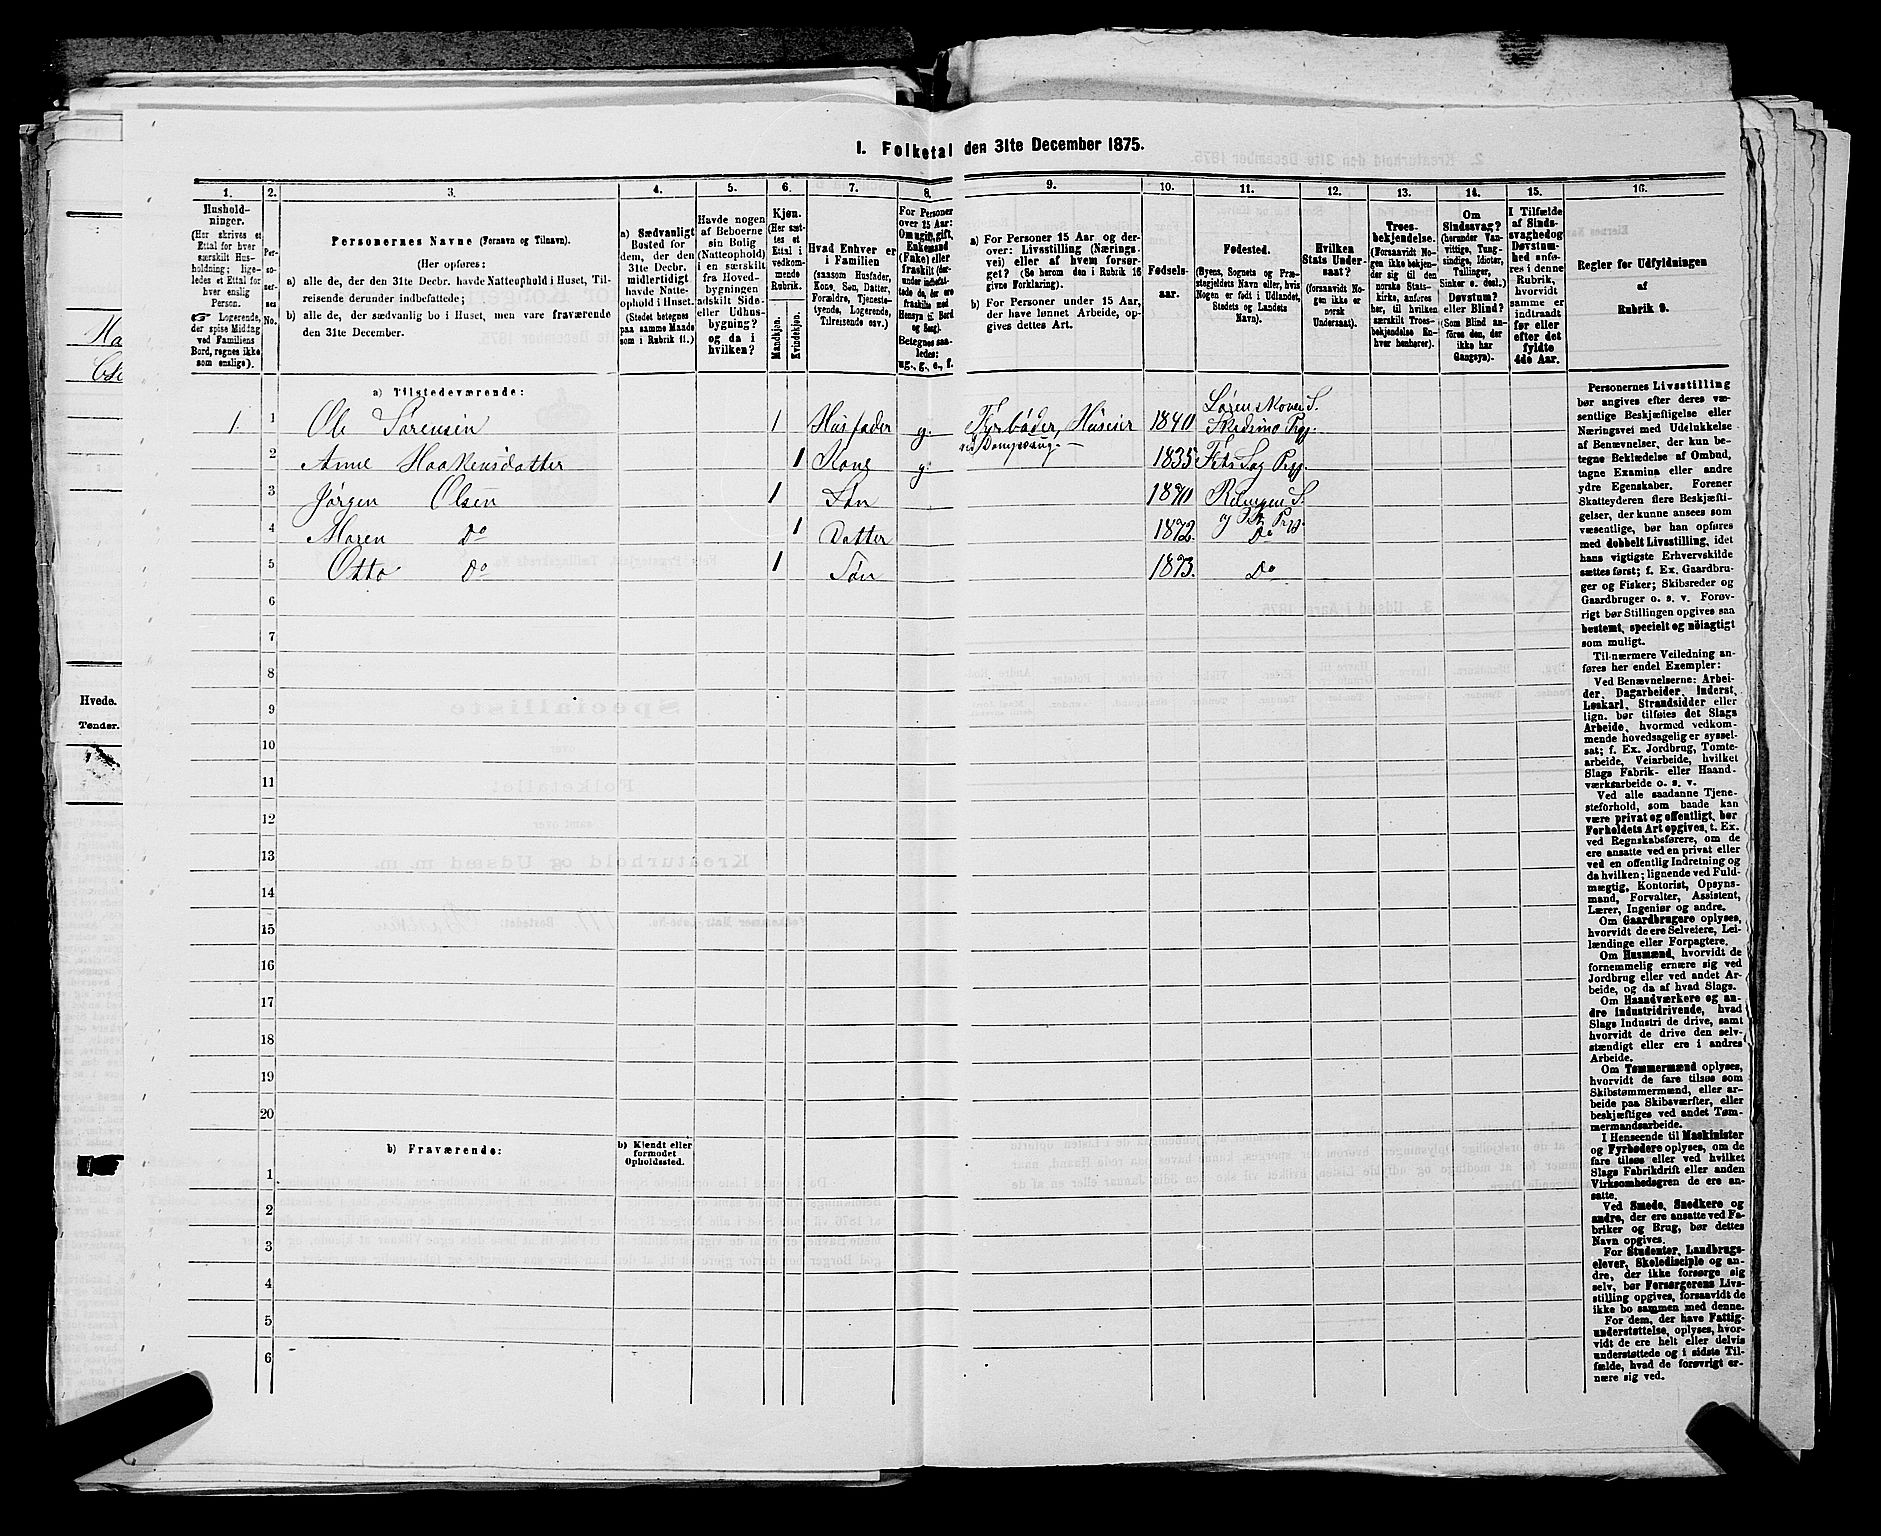 1. Folketal den 31te December 1875.
1. 2. 3. 4. 5. 6. 7. 8. 9. 10. 11. 12. 13. 14. 15. 16.
Hushold-
ninger.
(Her skrives et
Ettal for hver
særskilt Hus-
holdning; lige-
ledes et Ettal
for hver
enslig
Person.
☞ Logerende,
der spise Middag
ved Familiens
Bord, regnes ikke
som enslige).
Per-
so-
ner-
nes
No.
Personernes Navne (Fornavn og Tilnavn).
(Her opføres:
a) alle de, der den 31te Decbr. havde Natteophold i Huset, Til-
reisende derunder indbefattede;
b) alle de, der sædvanlig bo i Huset, men vare fraværende
den 31te December.
a) Sædvanligt
Bosted for
dem, der den
31te Decbr.
midlertidigt
havde Natte-
ophold i Huset.
(Stedet betegnes
paa samme Maade
som i Rubrik 11.)
Havde nogen
af Beboerne
sin Bolig
(Natteophold)
i en særskilt
fra Hoved-
bygningen
adskilt Side-
eller Udhus-
bygning?
og da i
hvilken?
Kjøn.
(Her sæt-
tes et
Ettal i
vedkom-
mende
Rubrik.
Mandkjøn.
Kvindekjøn.
Hvad Enhver er
i Familien
(saasom Husfader,
Kone, Søn, Datter,
Forældre, Tjeneste-
tyende, Logerende,
Tilreisende osv.)
For Personer
over 15 Aar:
Om ugift, gift,
Enkemand
(Enke) eller
fraskilt (der-
under indbefat-
tede de, der ere
fraskilte med
Hensyn til Bord
og Seng).
Betegnes saa-
ledes:
ug., g., e., f.
a) For Personer 15 Aar og der-
over: Livsstilling (Nærings-
vei) eller af hvem forsør-
get? (Se herom den i Rubrik 16
givne Forklaring).
b) For Personer under 15 Aar,
der have lønnet Arbeide, op-
gives dettes Art.
Fødsels-
aar.
Fødested.
(Byens, Sognets og Præ-
stegjeldets Navn eller, hvis
Nogen er født i Udlandet,
Stedets og Landets
Navn).
Hvilken
Stats Under-
saat?
(forsaavidt No-
gen ikke er
norsk
Undersaat).
Troes-
bekjendelse.
(Forsaavidt No-
gen ikke bekjen-
der sig til den
norske Stats-
kirke, anføres
her, til hvilken
særskilt Troes-
bekjendelse En-
hver henhører).
Om
Sindssvag?
(herunder Van-
vittige, Tung-
sindige, Idioter,
Tullinger,
Sinker o. desl.)
Døvstum?
eller Blind?
(Som Blind an-
føres den, der
ikke har
Gangsyn).
I Tilfælde
af Sinds-
svaghed og
Døvstum-
hed anfø-
res i denne
Rubrik,
hvorvidt
samme er
indtraadt
før eller
efter det
fyldte
4de Aar.
Regler for Udfyldningen
af
Rubrik 9.
a) Tilstedeværende:
1. 1 Ole Sørensen 1 Husfader g. Fyrbøder, Huseier 1840 Lørenskoven S. Skedsmo Prgj.
ved Dampsaug.
2 Anne Haakensdatter 1 Kone g. 1835 Fets Sog Prgj.
3 Jørgen Olsen 1 Søn 1870 Relingen S. og Fet Prgj.
4 Maren Do 1 Datter 1872. Do
5 Otto Do 1 Søn 1873. Do
6
7
8
9
10
11
12
13
14
15
16
17
18
19
20
b) Fraværende:
b) Kjendt eller
formodet
Opholdssted.
1
2
3
4
5
6
Personernes Livsstilling
bør angives efter deres væ-
sentlige Beskjæftigelse eller
Næringsvei med Udelukkelse
af Benævnelser, der kun be-
tegne Beklædelse af Ombud,
tagne Examina eller andre
ydre Egenskaber. Forener
Skatteyderen flere Beskjæfti-
gelser, der kunne ansees som
væsentlige, bør han opføres
med dobbelt Livsstilling, idet
hans vigtigste Erhvervskilde
sættes først; f. Ex. Gaardbru-
ger og Fisker; Skibsreder og
Gaardbruger o. s. v. Forøv-
rigt bør Stillingen opgives saa
bestemt, specielt og nøiagtigt
som muligt.
Til nærmere Veiledning an-
føres her endel Exempler:
Ved Benævnelserne: Arbei-
der, Dagarbeider, Inderst,
Løskarl, Strandsidder eller
lign. bør tilføies det Slags
Arbeide, hvormed vedkom-
mende hovedsagelig er syssel-
sat; f. Ex. Jordbrug, Tomte-
arbeide, Veiarbeide, hvilket
Slags Fabrik- eller Haand-
værksarbeide o. s. v.
Ved alle saadanne Tjene-
steforhold, som baade kan
være privat og offentligt, bør
Forholdets Art opgives, t. Ex.
ved Regnskabsførere, om de
ere ansatte ved en privat eller
ved en offentlig Indretning og
da hvilken; lignende ved Fuld-
mægtig, Kontorist, Opsyns-
mand, Forvalter, Assistent,
Lærer, Ingeniør og andre.
Om Gaardbrugere oplyses,
hvorvidt de ere Selveiere, Lei-
lændinge eller Forpagtere.
Om Husmænd, hvorvidt de
fornemmelig ernære sig ved
Jordbrug eller ved andet Ar-
beide, og da af hvad Slags.
Om Haandværkere og an-
dre Industridrivende, hvad
Slags Industri de drive, samt
hvorvidt de drive den selv-
stændigt eller ere i andres
Arbeide.
Om Tømmermænd oplyses,
hvorvidt de fare tilsøs som
Skibstømmermænd, eller ar-
beide paa Skibsværfter, eller
beskjæftiges ved andet Tøm-
mermandsarbeide.
I Henseende til Maskinister
og Fyrbødere oplyses, om de
fare tilsøs eller ved hvilket
Slags Fabrikdrift eller anden
Virksomhedsgren de ere an-
satte.
Ved Smede, Snedkere og
andre, der ere ansatte ved Fa-
briker og Brug, bør dettes
Navn opgives.
For Studenter, Landbrugs-
elever, Skoledisciple og an-
dre, der ikke forsørge sig
selv, bør Forsørgerens Livs-
stilling opgives, forsaavidt de
ikke bo sammen med denne.
For dem, der have Fattig-
understøttelse, oplyses, hvor-
vidt de ere helt eller delvis
understøttede og i sidste Til-
fælde, hvad de forøvrigt er-
nære sig ved.
Hvede.
Tønder.